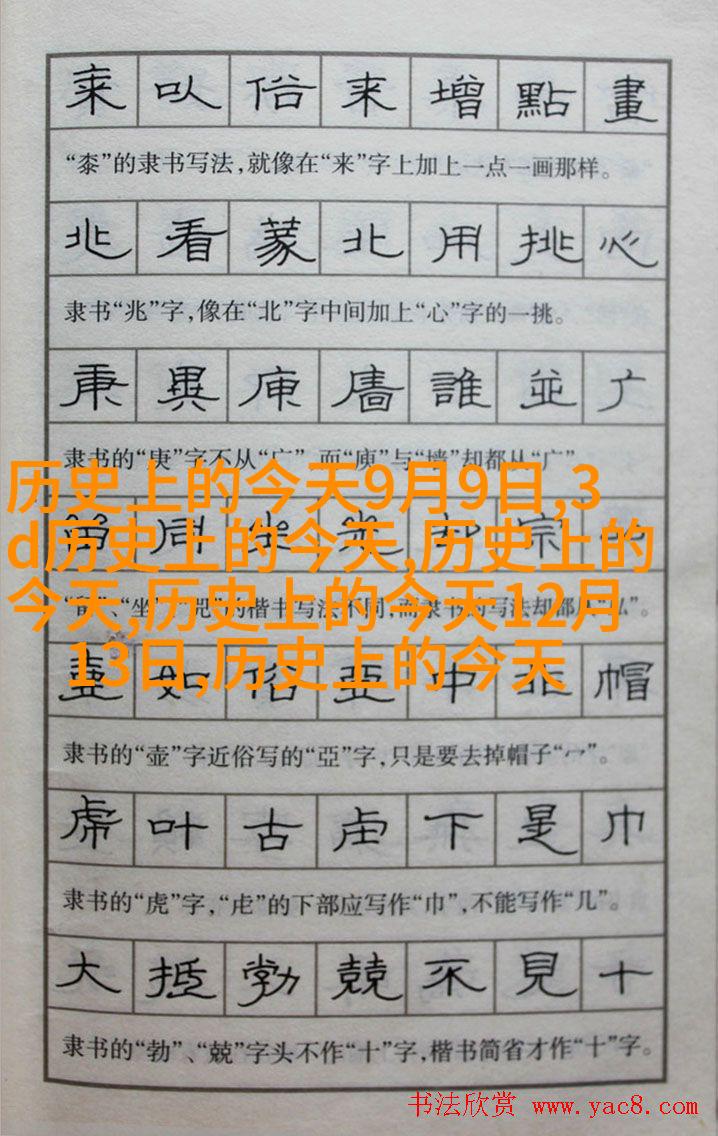 来 以 俗 来 增 點 畫
“桼”的隶书写法,就像在“来”字上加上一点一画那样。
兆 看 蒙 北 用 挑 心
隶书“兆”字,像在“北”字中间加上“心”字的一挑。
庚 異 庾 廧 誰 並 广
隶书的“庚”字不从“广” 而“庾”与“墙”却都从“广”
历史上的今天9月9日,3
d历史上的今天,历史上的
今天,历史上的今天12月
13日,历史上的今天
同 坐 宗
、“坐” 的楷书写法不同,而隶书的写法却都从“厸”。
壶 如 俗 亞 中 非 帽
隶书的“壶”字近俗写的“亞”字,只是要去掉帽子“宀”。
虎 叶 古 虍 下 是 巾
隶书的“虎”字,“虍”的下部应写作“巾”,不能写作“几”。
大 抵 勃 兢 不 見 十
隶书的“勃”、“兢”字头不作“十”字,楷书简省才作“十”字。
书法欣赏 www.yac8.com